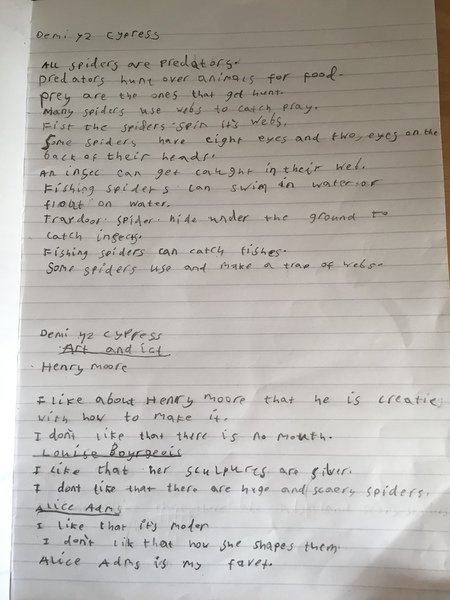 Demi y2 cypress
All spiders are predators.
predators hunt over animals for food.
prey are the ones that get hunt.
Many spiders use webs to catch pray.
Fist the spiders spin it's webs.
Some spiders have eight eyes and two, eyes on the
back of their heads.
An insec can get caught in their web.
Fishing spiders can swim in water or
float on water.
Trapdoor spider hide under the ground to
catch insects.
Fishing spiders can catch fishes.
Some spiders use and make a trap of webs.
Demi y2 cypress
Art and ict
Henry moore
I like about Henry moore that he is creatie
with how to make it.
I don't like that there is no mouth.
Louise Bourgeois
I like that her sculptures are silver.
I dont like that there are huge and scaery spiders.
Alice Adms
I like that it's moder
I don't lik that how she shapes them.
Alice Adms is my favet.